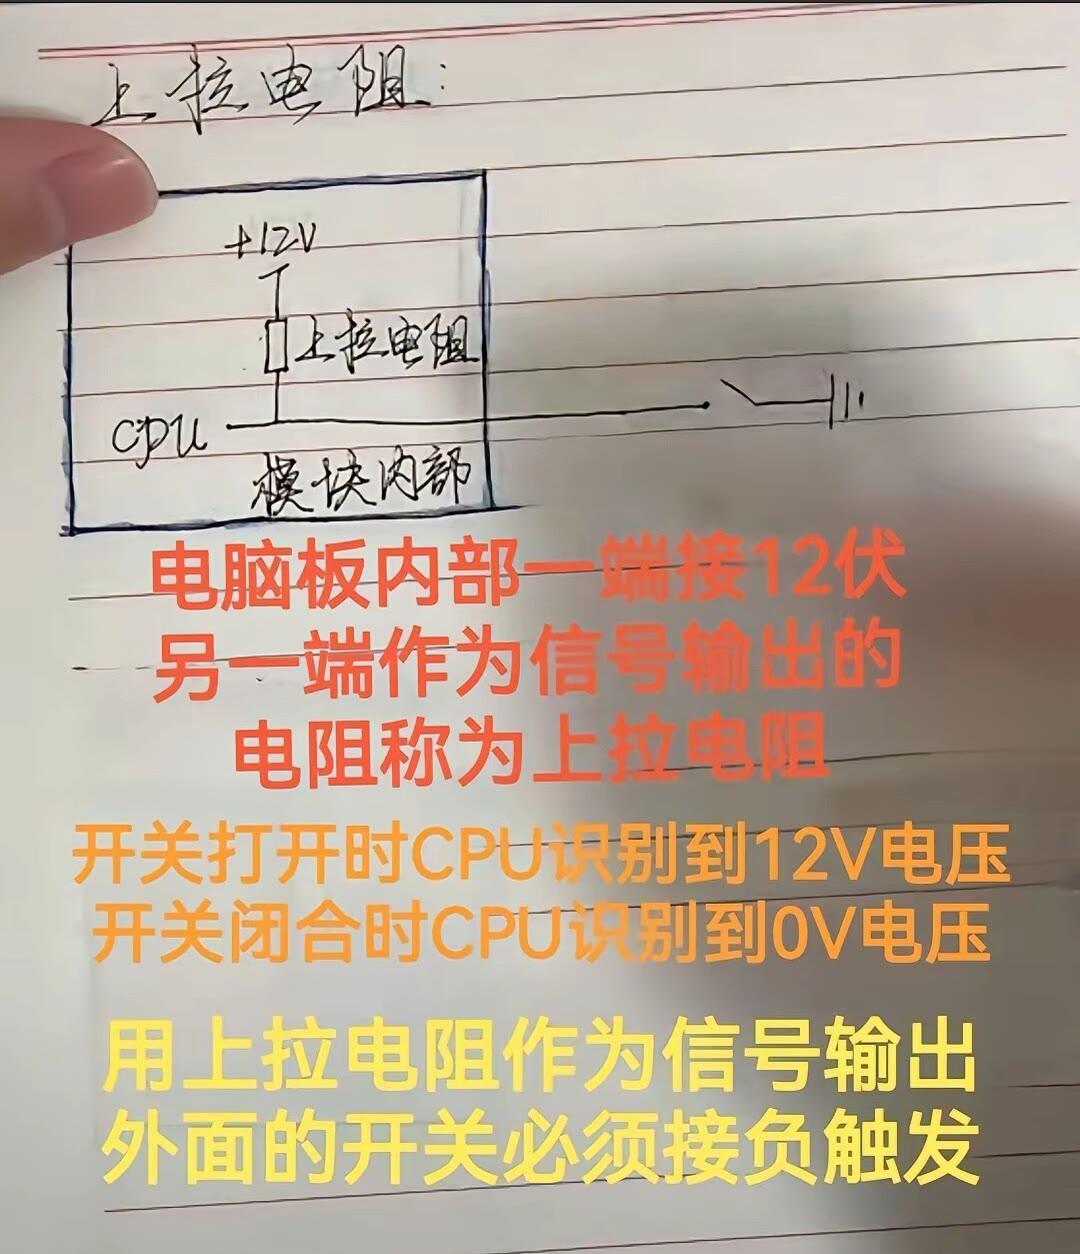 上拉电阻:
+12V
上拉电阻
CPU
模块内部
电脑板内部一端接12伏
另一端作为信号输出的
电阻称为上拉电阻
开关打开时CPU识别到12V电压
开关闭合时CPU识别到0V电压
用上拉电阻作为信号输出
外面的开关必须接负触发